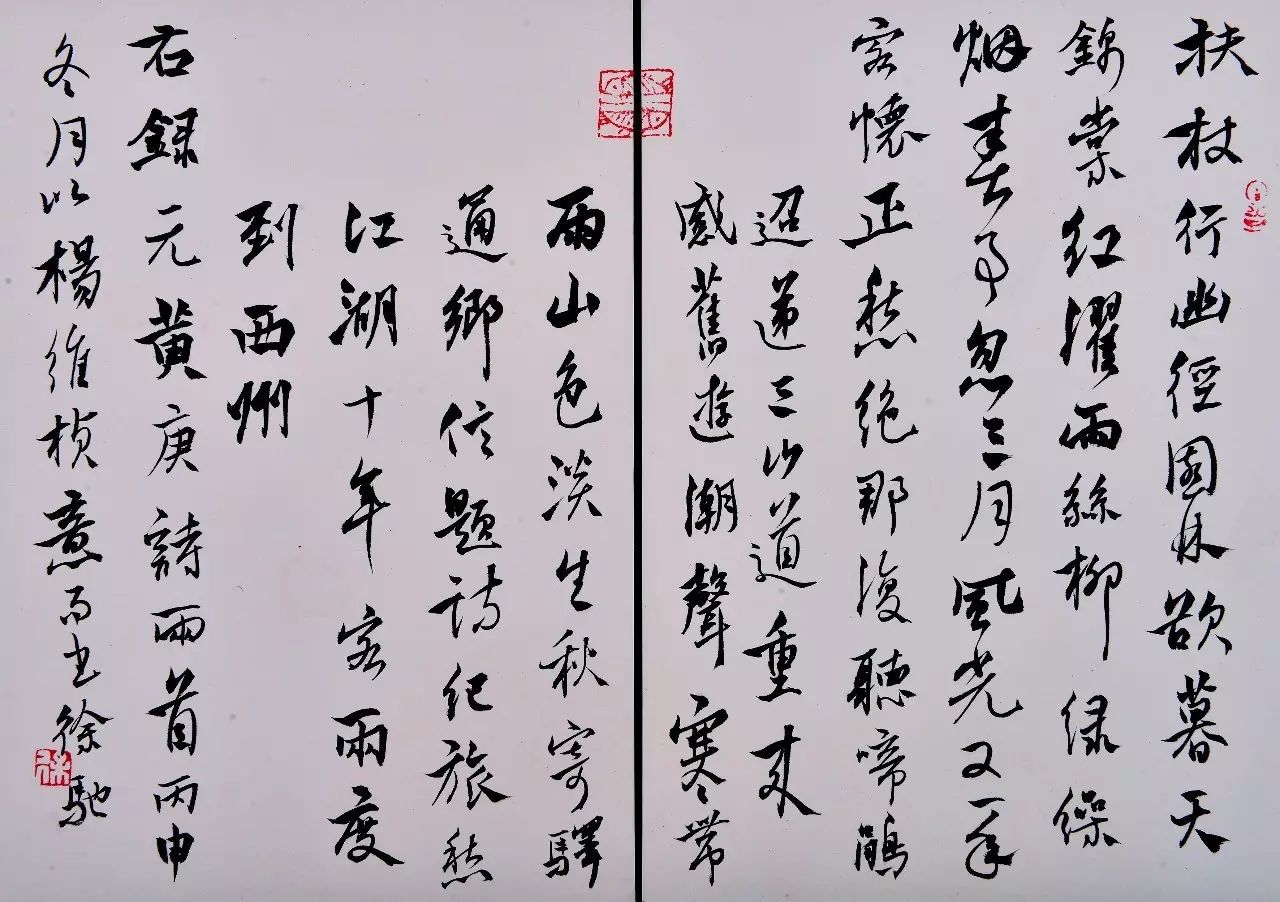 扶杖行幽徑園林欲暮天
錦棠紅濯雨絲柳綠繰
烟春事忽三月風光又一年
客懷正愁絕那復聽啼鵑
迢遞三山道重來
感舊遊潮聲寒帶
雨山色淡生秋寄驛
通鄉信題詩紀旅愁
江湖十年客兩度
到西州
右録元黄庚詩兩首丙申
冬月以楊維楨意而書徐馳